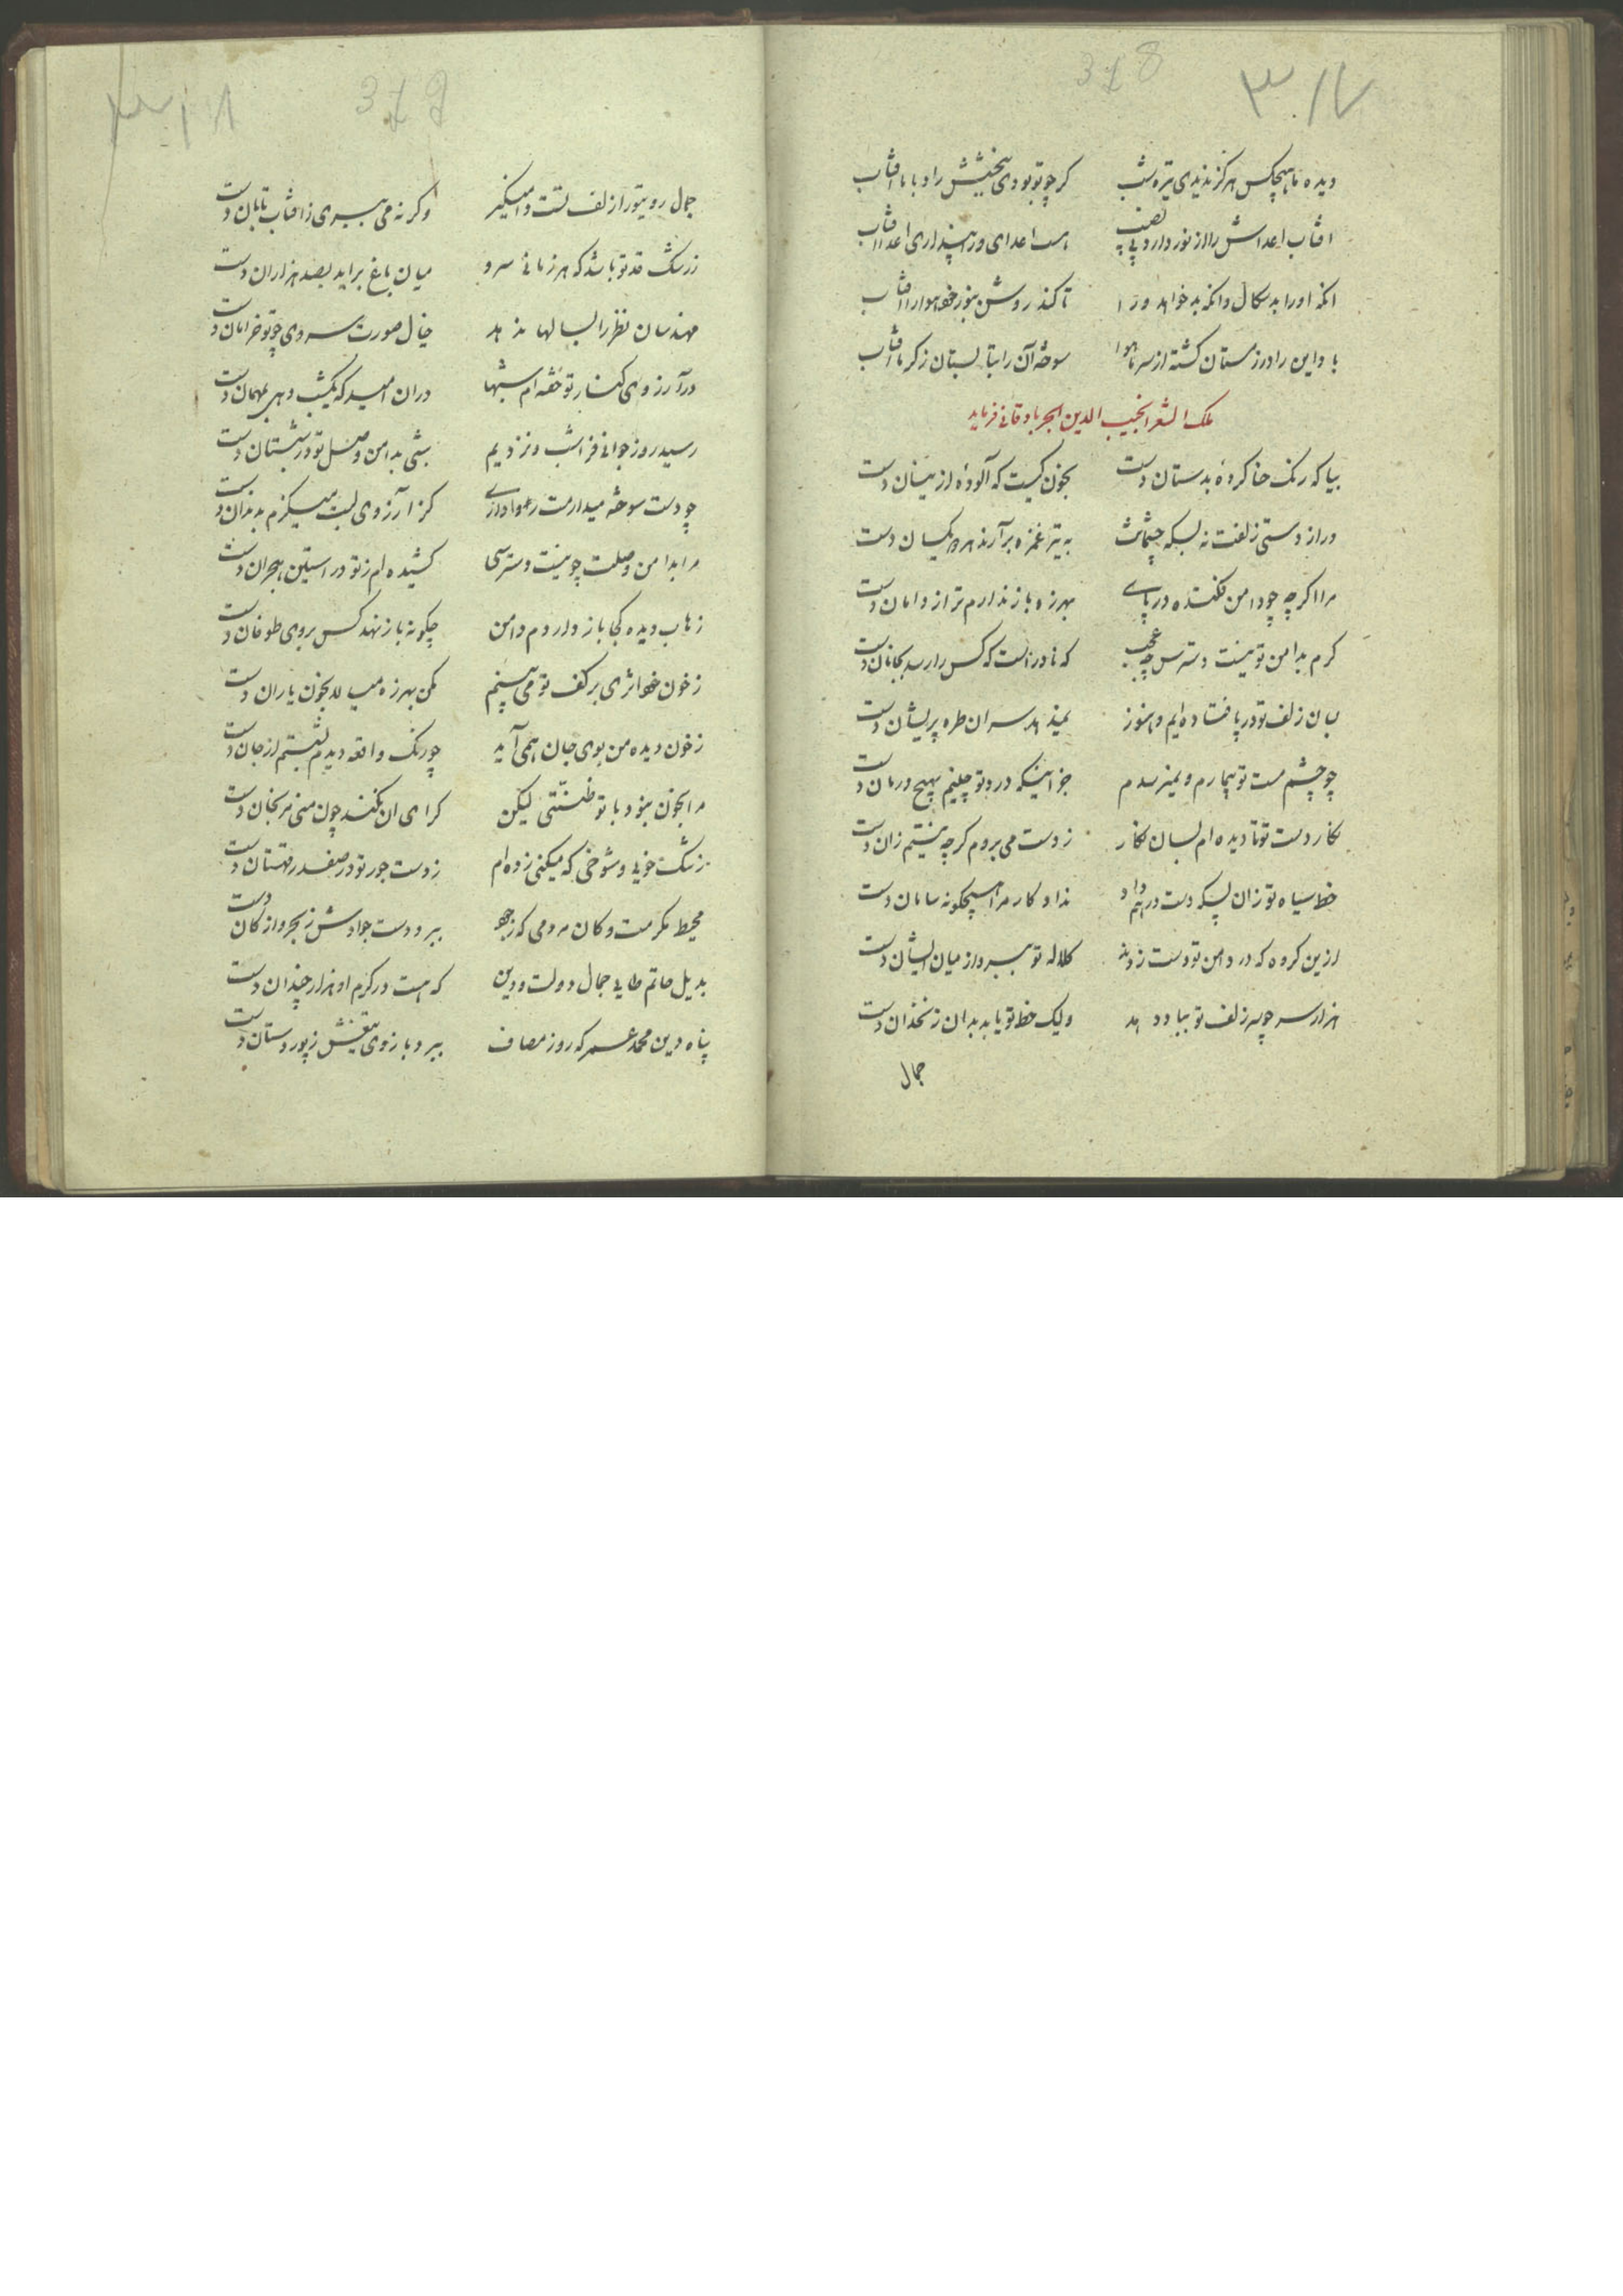 318 ۳۱۷
دیده ما هیچکس هرگز ندیدی تیره شب کر چو تو بودی ببخشش راد بابا افتاب
افتاب اعداش را از نور دارد بی نصیب هست اعدای ورا پنداری اعدا افتاب
انکه او را بد سکال وانکه بد خواهد ورا تا کند روشن بنور خود هوا را افتاب
باد این را در زمستان کشته از سرما هوا سوخته آن را بتابستان ز کرما افتاب
ملک الشعرا نجیب الدین الجرباد قانی فرماید
بیا که رنک حنا کرده بدستان دست بخون کیست که آلوده از ینسان دست
دراز دستی زلفت نه بسکه چشمانت به تیر غمزه برآرند هر دو یکسان دست
مرا اکرچه چو دامن فکنده در پای بهرزه باز ندارم ترا ز دامان دست
کرم بدامن تو نیست دسترس چه عجب که نادر است که کس را رسد بجانان دست
بسان زلف تو در پا فتاده ایم و هنوز نمیدهد سر ان طره پریشان دست
چو چشم مست تو بیمارم و نمیرسدم جز اینکه درد تو چینم بهیچ درمان دست
نکار دست تو تا دیده ام بسان نکار ز دست می بروم کرچه نیستم زان دست
خط سیاه تو زان پس که دست در هم داد نداد کار مرا هیچکونه سامان دست
ازین کروه که در دامن تو دست زدند کلاله تو ببرد از میان ایشان دست
هزار سر چو سر زلف تو بباد دهد ولیک خط تو یابد بدان زنخدان دست
جمال
319 ۳۱۸
جمال روی تو را زلف تست دامنکیر وکرنه می ببری ز افتاب تابان دست
ز رشک قد تو باشد که هر زمانی سرو میان باغ براید بصد هزاران دست
مهندسان نظر را بسالها ندهد خیال صورت سروی چو تو خرامان دست
در آرزوی کنار تو خفته ام شبها دران امید که یکشب دهی بمهمان دست
رسید روز جوانی فرا شب و نزدیم شبی بدامن وصل تو در شبستان دست
چو دست سوخته میدارمت کز آرزوی لبت میکزم بدندان دست
مرا بدامن وصلت چو نیست دسترسی کشیده ام ز تو در استین هجران دست
ز آب دیده کجا باز داردم دامن چکونه باز نهد کس بروی طوفان دست
ز خون خود اثری بر کف تو می بینم مکن بهرزه میالا بخون یاران دست
ز خون دیده من بوی جان همی آید چو رنک واقعه دیدم بشستم از جان دست
مرا بخون نبود با تو ظنتی لیکن کرای ان نکند چون منی مرنجان دست
ز شنک خویی و شوخی که میکنی زده ام ز دست جور تو در صفدر قهستان دست
محیط مکرمت و کان مردمی که ز جود ببرد دست جوادش ز بحر و از کان دست
بدیل حاتم طایی جمال دولت و دین که هست در کرم او هزار چندان دست
پناه دین محمد عمر که روز مصاف ببرد بازوی تیغش ز پور دستان دست